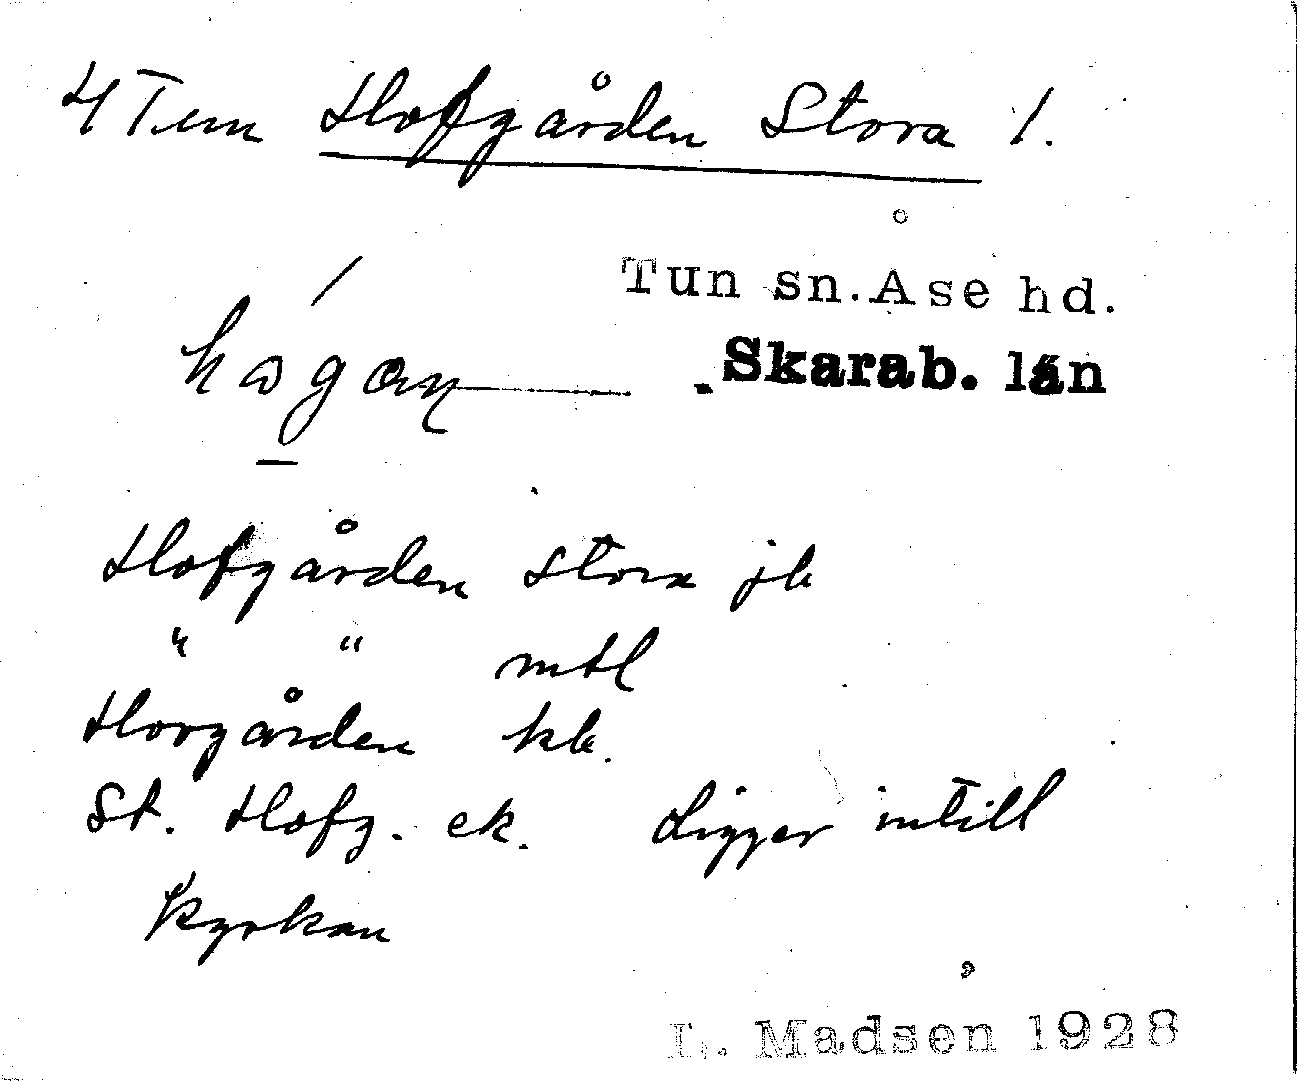 4 Tun Hofgården Stora 1.
Tun sn. Åse hd.
Skarab. län
hògaɳ
Hofgården Stora jb
" " mtl
Hovgården kb.
St. Hofg. ek. Ligger intill
kyrkan
L. Madsen 1928